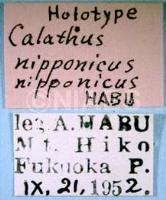 Holotype
Calathus
nipponicus
nipponicus
HABU
leg. A. HABU
Mt. Hiko
Fukuoka P.
IX, 21, 1952.